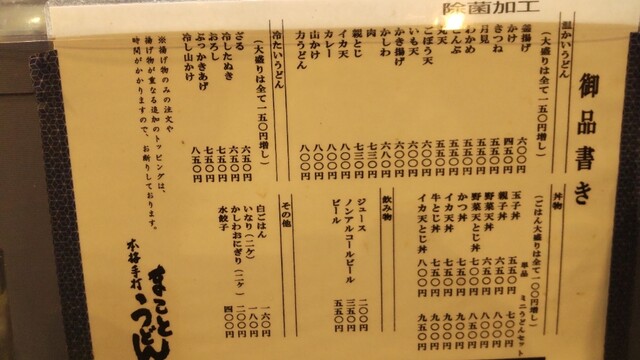 除菌加工
御品書き
温かいうどん
(大盛りは全て一五〇円増し)
釜揚げ 六〇〇円
かけ 四五〇円
きつね 五五〇円
月見 五五〇円
わかめ 五五〇円
こんぶ 五五〇円
丸天 五五〇円
ごぼう天
いも天
かき揚げ
かしわ 六八〇円
肉 七三〇円
親とじ 七三〇円
イカ天 八〇〇円
カレー 八〇〇円
山かけ 八〇〇円
力うどん 八〇〇円
冷たいうどん
(大盛りは全て一五〇円増し)
ざる 六五〇円
冷したぬき 六五〇円
おろし 七五〇円
ぶっかきあげ 七五〇円
冷し山かけ 八五〇円
※揚げ物のみの注文や
揚げ物が重なる追加のトッピングは、
時間がかかりますので、お断りしております。
丼物
(ごはん大盛りは全て一〇〇円増し)
単品 ミニうどんセット
玉子丼 五五〇円 七〇〇円
親子丼 六五〇円 八〇〇円
野菜天丼
野菜天とじ丼
かつ丼 七五〇円 九〇〇円
イカ天丼 七五〇円 九〇〇円
牛とじ丼
イカ天とじ丼 八〇〇円 九五〇円
飲み物
ジュース 二〇〇円
ノンアルコールビール 三五〇円
ビール 五五〇円
その他
白ごはん 一六〇円
いなり(二ケ) 一八〇円
かしわおにぎり(二ケ) 二〇〇円
水餃子 四〇〇円
本格手打
まことうどん